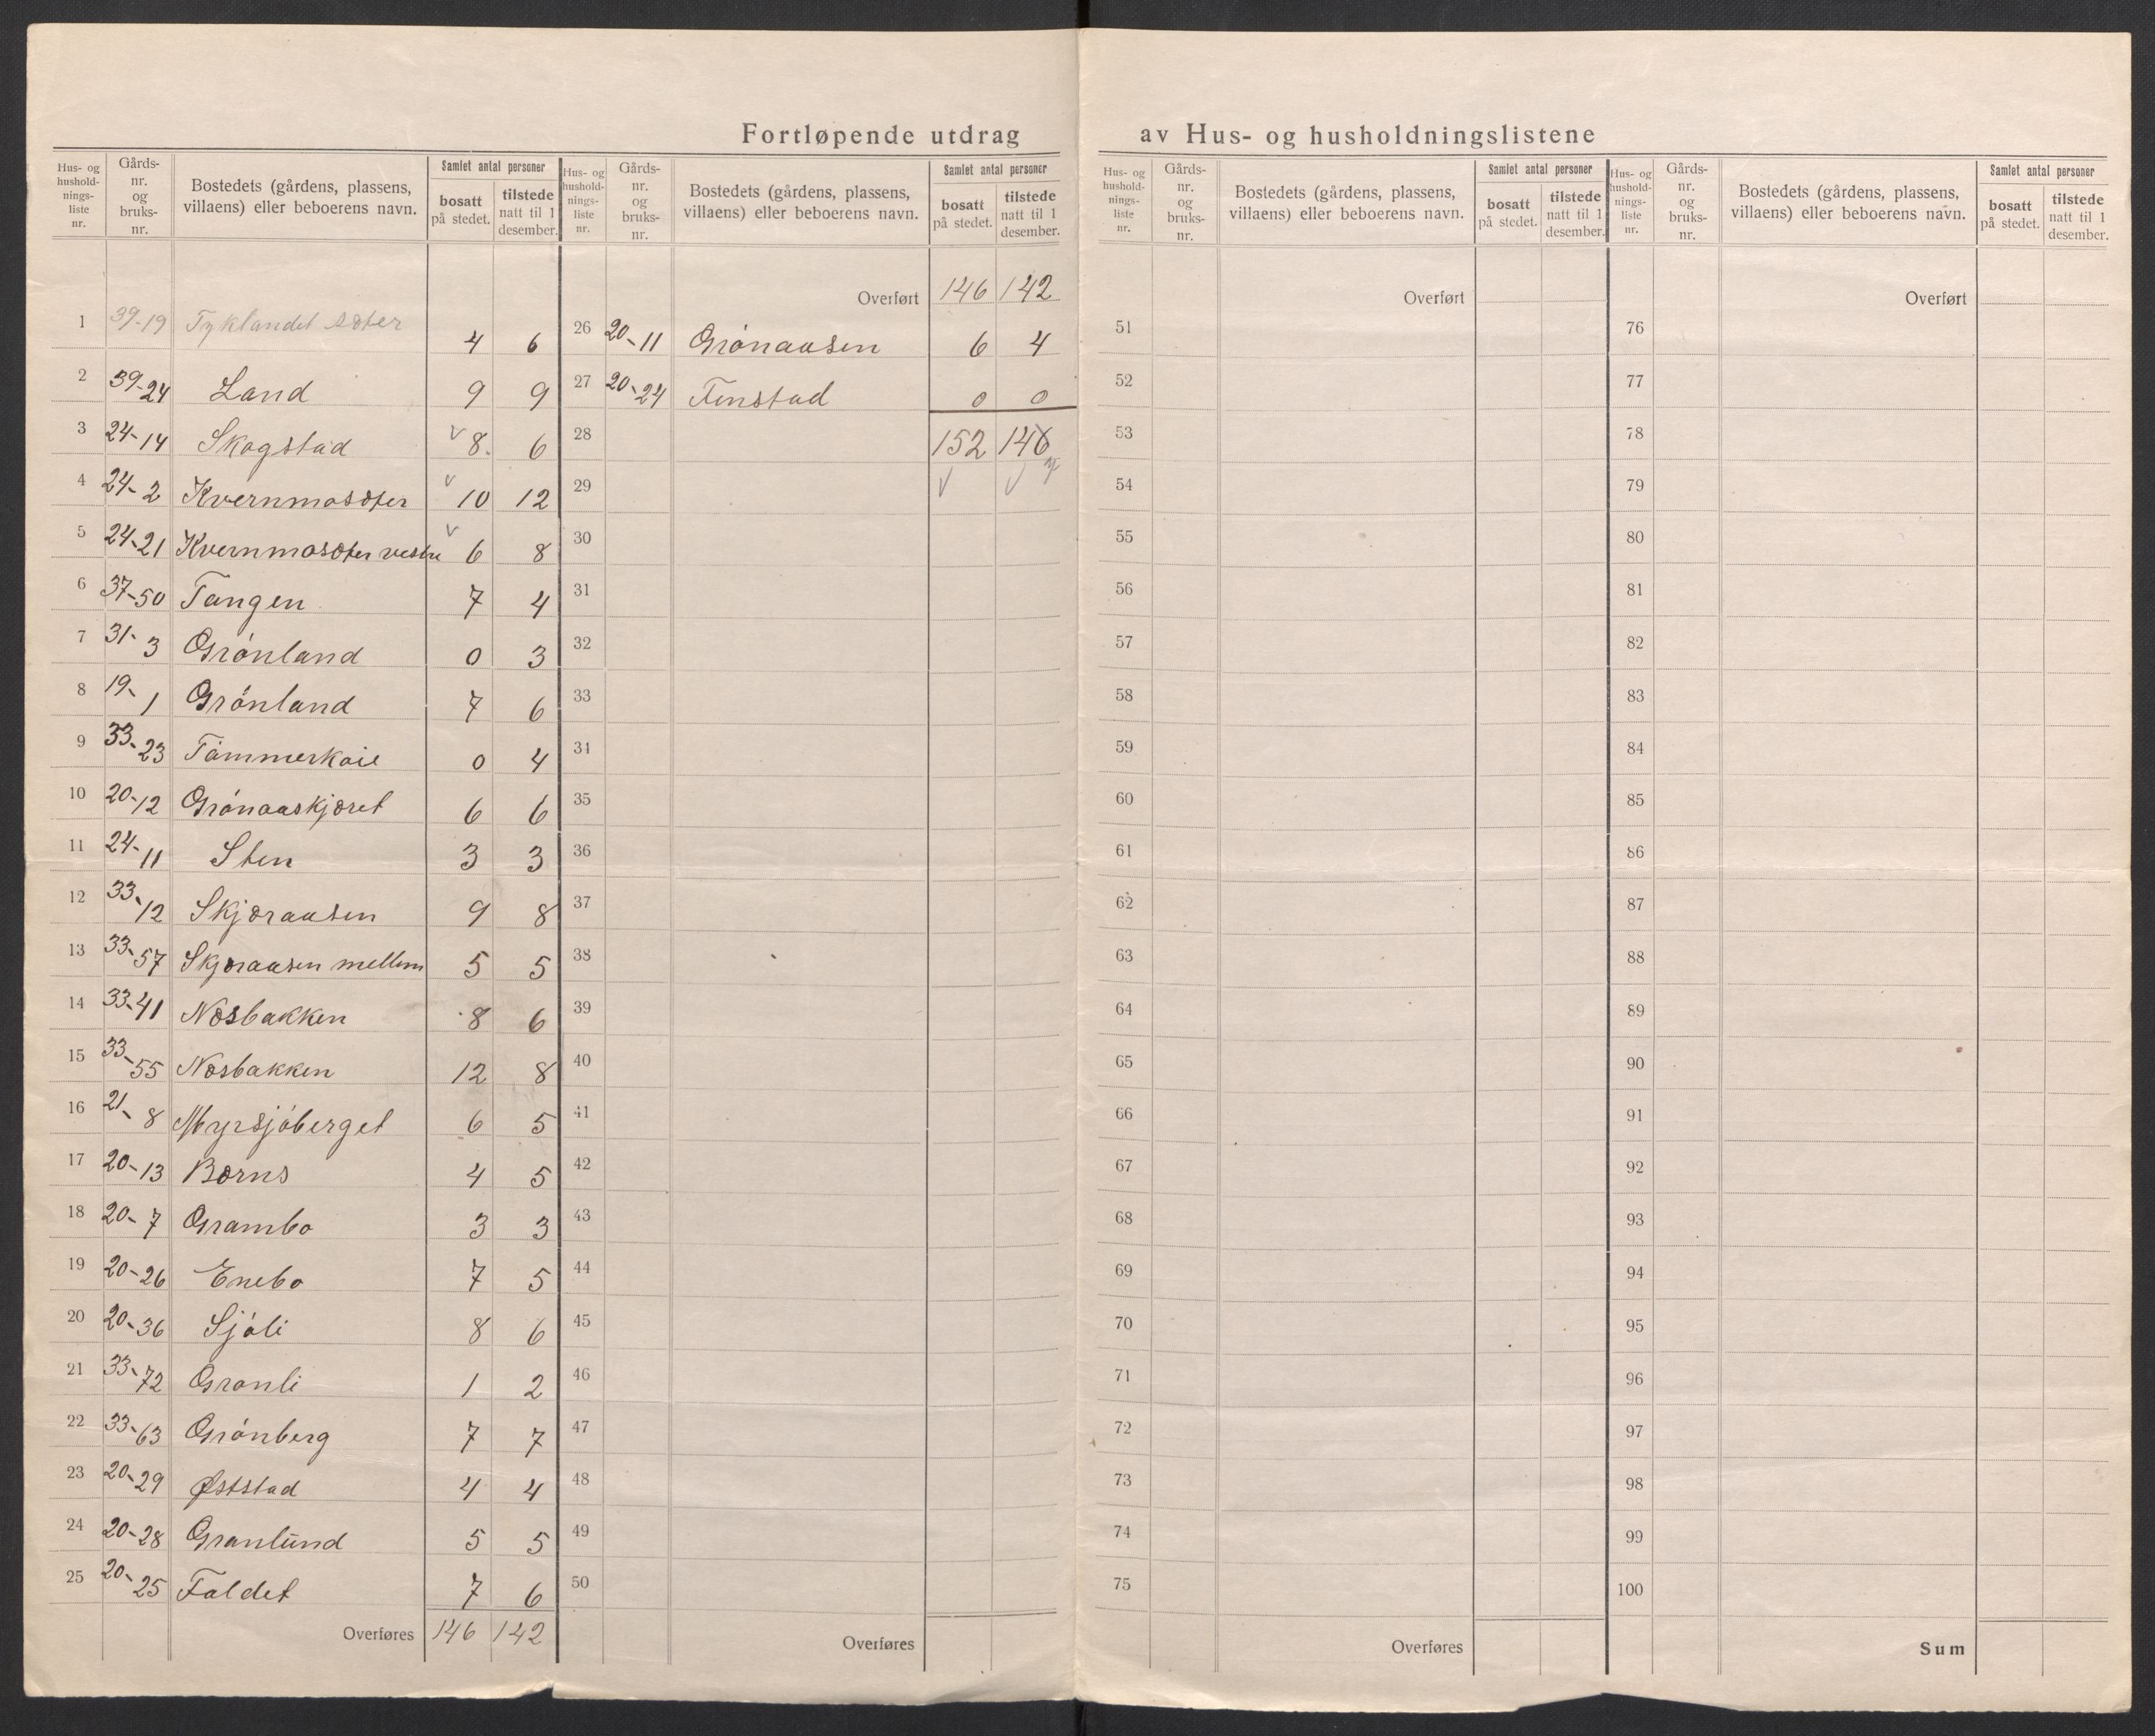 Fortløpende utdrag av Hus- og husholdningslistene
Hus- og hushold-nings-liste nr. Gårds-nr. og bruks-nr. Bostedets (gårdens, plassens, villaens) eller beboerens navn. Samlet antal personer bosatt på stedet. tilstede natt til 1 desember.
1 39-19 Tyklandet sæter 4 6
2 39-24 Land 9 9
3 24-14 Skogstad v 8. 6
4 24-2 Kvernmosæter v 10 12
5 24-21 Kvernmosæter vestre v 6 8
6 37-50 Tangen 7 4
7 31-3 Grónland 0 3
8 19-1 Grónland 7 6
9 33-23 Tómmerkoie 0 4
10 20-12 Grónaaskjæret 6 6
11 24-11 Sten 3 3
12 33-12 Skjæraasen 9 8
13 33-57 Skjæraasen mellem 5 5
14 33-41 Næsbakken 8 6
15 33-55 Næsbakken 12 8
16 21-8 Myrsjóberget 6 5
17 20-13 Børns 4 5
18 20-7 Grambo 3 3
19 20-26 Enebo 7 5
20 20-36 Sjóli 8 6
21 33-72 Granli 1 2
22 33-63 Grónberg 7 7
23 20-29 Øststad 4 4
24 20-28 Granlund 5 5
25 20-25 Faldet 7 6
Overføres 146 142
Hus- og hushold-nings-liste nr. Gårds-nr. og bruks-nr. Bostedets (gårdens, plassens, villaens) eller beboerens navn. Samlet antal personer bosatt på stedet. tilstede natt til 1 desember.
Overført 146 142
26 20-11 Grónaasen 6 4
27 20-24 Finstad 0 0
28 152 146
29
30
31
32
33
34
35
36
37
38
39
40
41
42
43
44
45
46
47
48
49
50
Overføres
Hus- og hushold-nings-liste nr. Gårds-nr. og bruks-nr. Bostedets (gårdens, plassens, villaens) eller beboerens navn. Samlet antal personer bosatt på stedet. tilstede natt til 1 desember.
Overført
51
52
53
54
55
56
57
58
59
60
61
62
63
64
65
66
67
68
69
70
71
72
73
74
75
Overføres
Hus- og hushold-nings-liste nr. Gårds-nr. og bruks-nr. Bostedets (gårdens, plassens, villaens) eller beboerens navn. Samlet antal personer bosatt på stedet. tilstede natt til 1 desember.
Overført
76
77
78
79
80
81
82
83
84
85
86
87
88
89
90
91
92
93
94
95
96
97
98
99
100
Sum